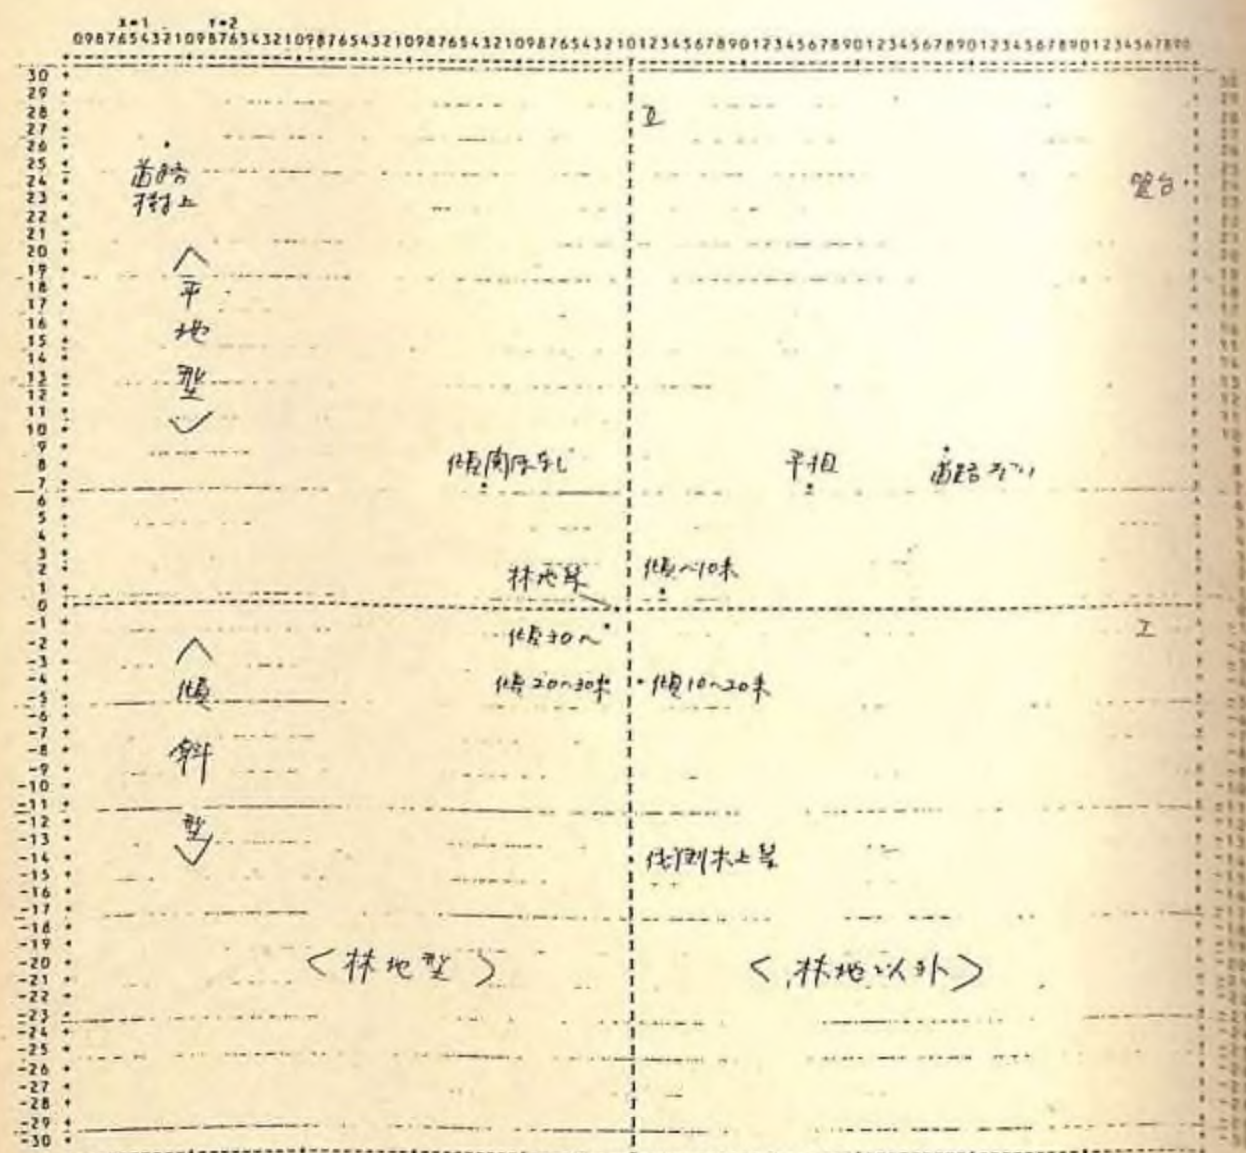 X=1 Y=2
09876543210987654321098765432109876543210987654321012345678901234567890123456789012345678901234567890
30
29
28
27
26
25
24
23
22
21
20
19
18
17
16
15
14
13
12
11
10
9
8
7
6
5
4
3
2
1
0
-1
-2
-3
-4
-5
-6
-7
-8
-9
-10
-11
-12
-13
-14
-15
-16
-17
-18
-19
-20
-21
-22
-23
-24
-25
-26
-27
-28
-29
-30
II
道路
樹上
<平地型>
傾関係なし
平坦
道路ぞい
林地緑
傾~10未
I
傾30~
傾20~30未
傾10~20未
<傾斜型>
<林地型>
<林地以外>